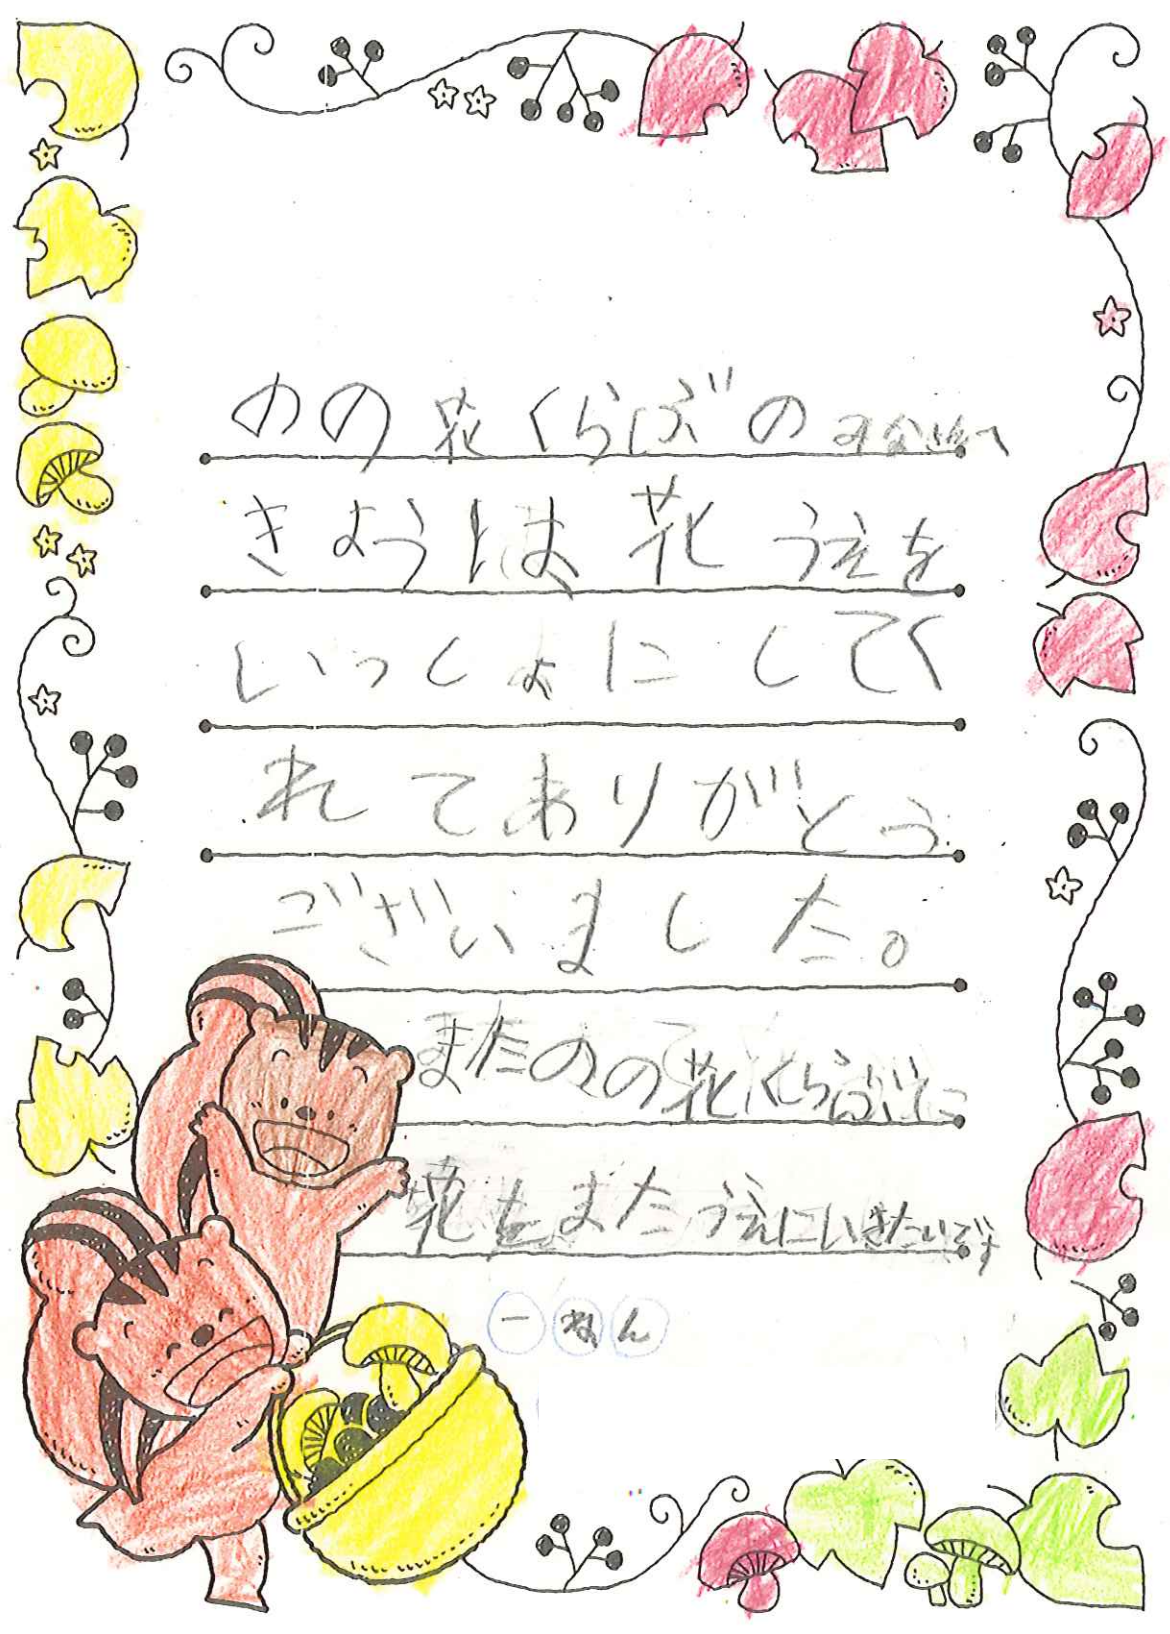 のの花くらぶのみなさんへ
きょうは花うえを
いっしょにしてく
れてありがとう
ございました。
またのの花くらぶに
花をまたうえにいきたいです
一ねん